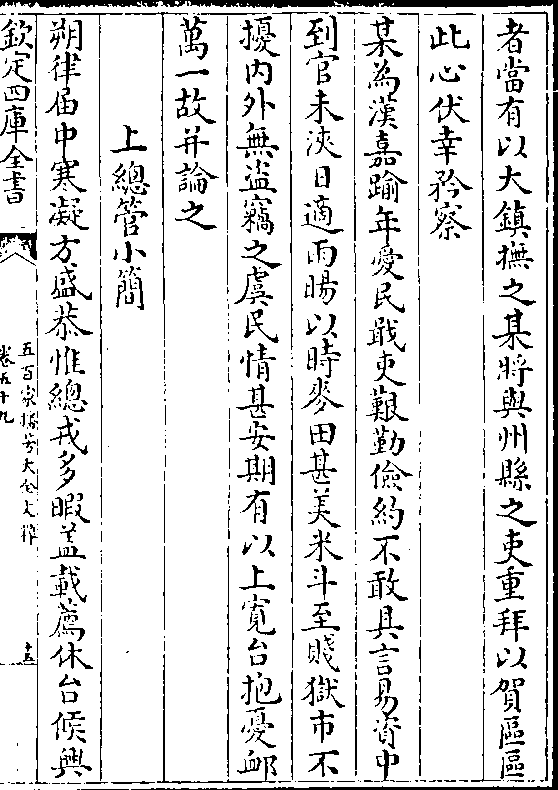 者當有以大鎮撫之某將與州縣之吏重拜以賀區區
此心伏幸矜察
某為漢嘉踰年愛民戢吏艱勤儉約不敢具言易資中
到官未浹日適雨暘以時麥田甚美米斗至賤獄市不
擾内外無盜竊之虞民情甚安期有以上寛台抱憂䘏
萬一故并論之
上總管小簡
朔律届中寒凝方盛恭惟總戎多暇葢載薦休台候興
欽定四庫全書
五百家播芳大全文粹
卷五十九
十五